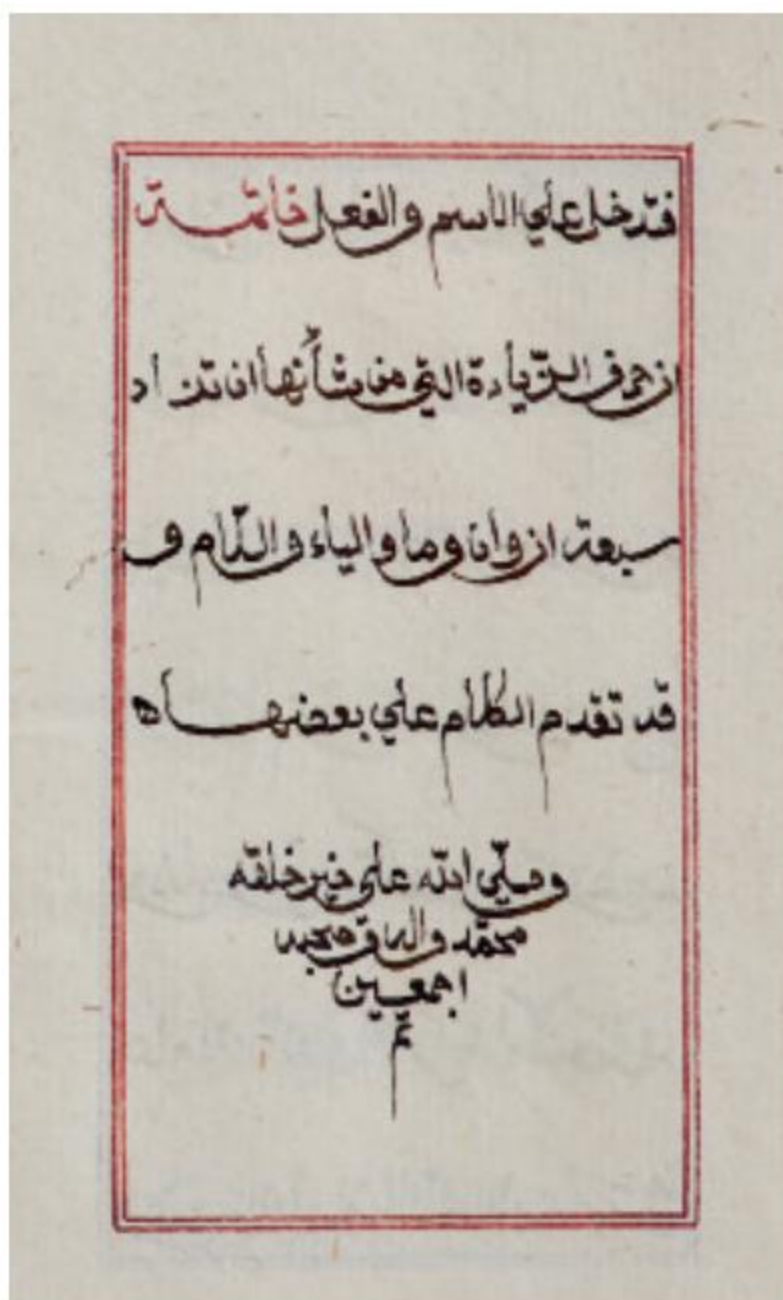 فتدخل علي الاسم والفعل خاتمة
ان حروف الزّيادة التي من شأنها ان تزاد
سبعة ان وأن وما والياء واللّام و
قد تقدم الكلام علي بعضها ه
وصلّي الله علي خير خلقه
محمّد واله وصحبه
اجمعين
تم